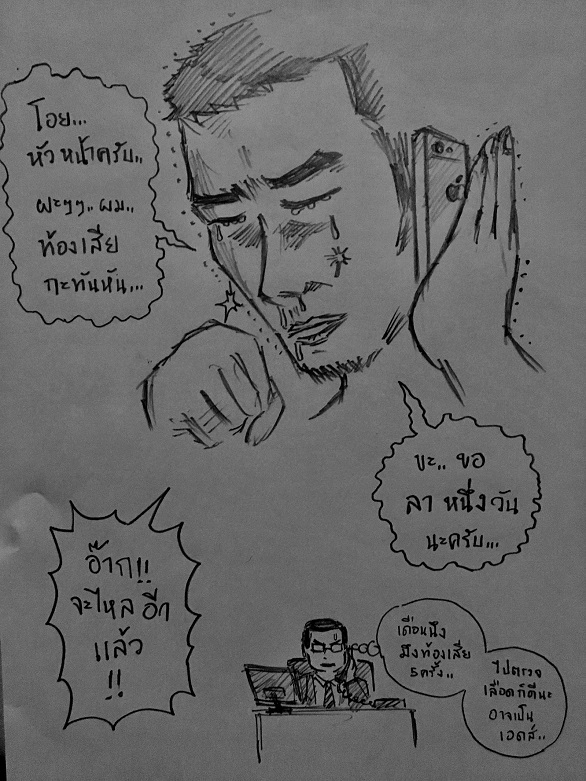 โอย...
หัวหน้าครับ..
ผะๆๆ.. ผม..
ท้องเสีย
กะทันหัน...
ขะ.. ขอ
ลา หนึ่งวัน
นะครับ...
อ๊าก!!
จะไหลอีก
แล้ว
!!
เดือนนึง
มึงท้องเสีย
5ครั้ง..
ไปตรวจ
เลือดก็ดีนะ
อาจเป็น
เอดส์..